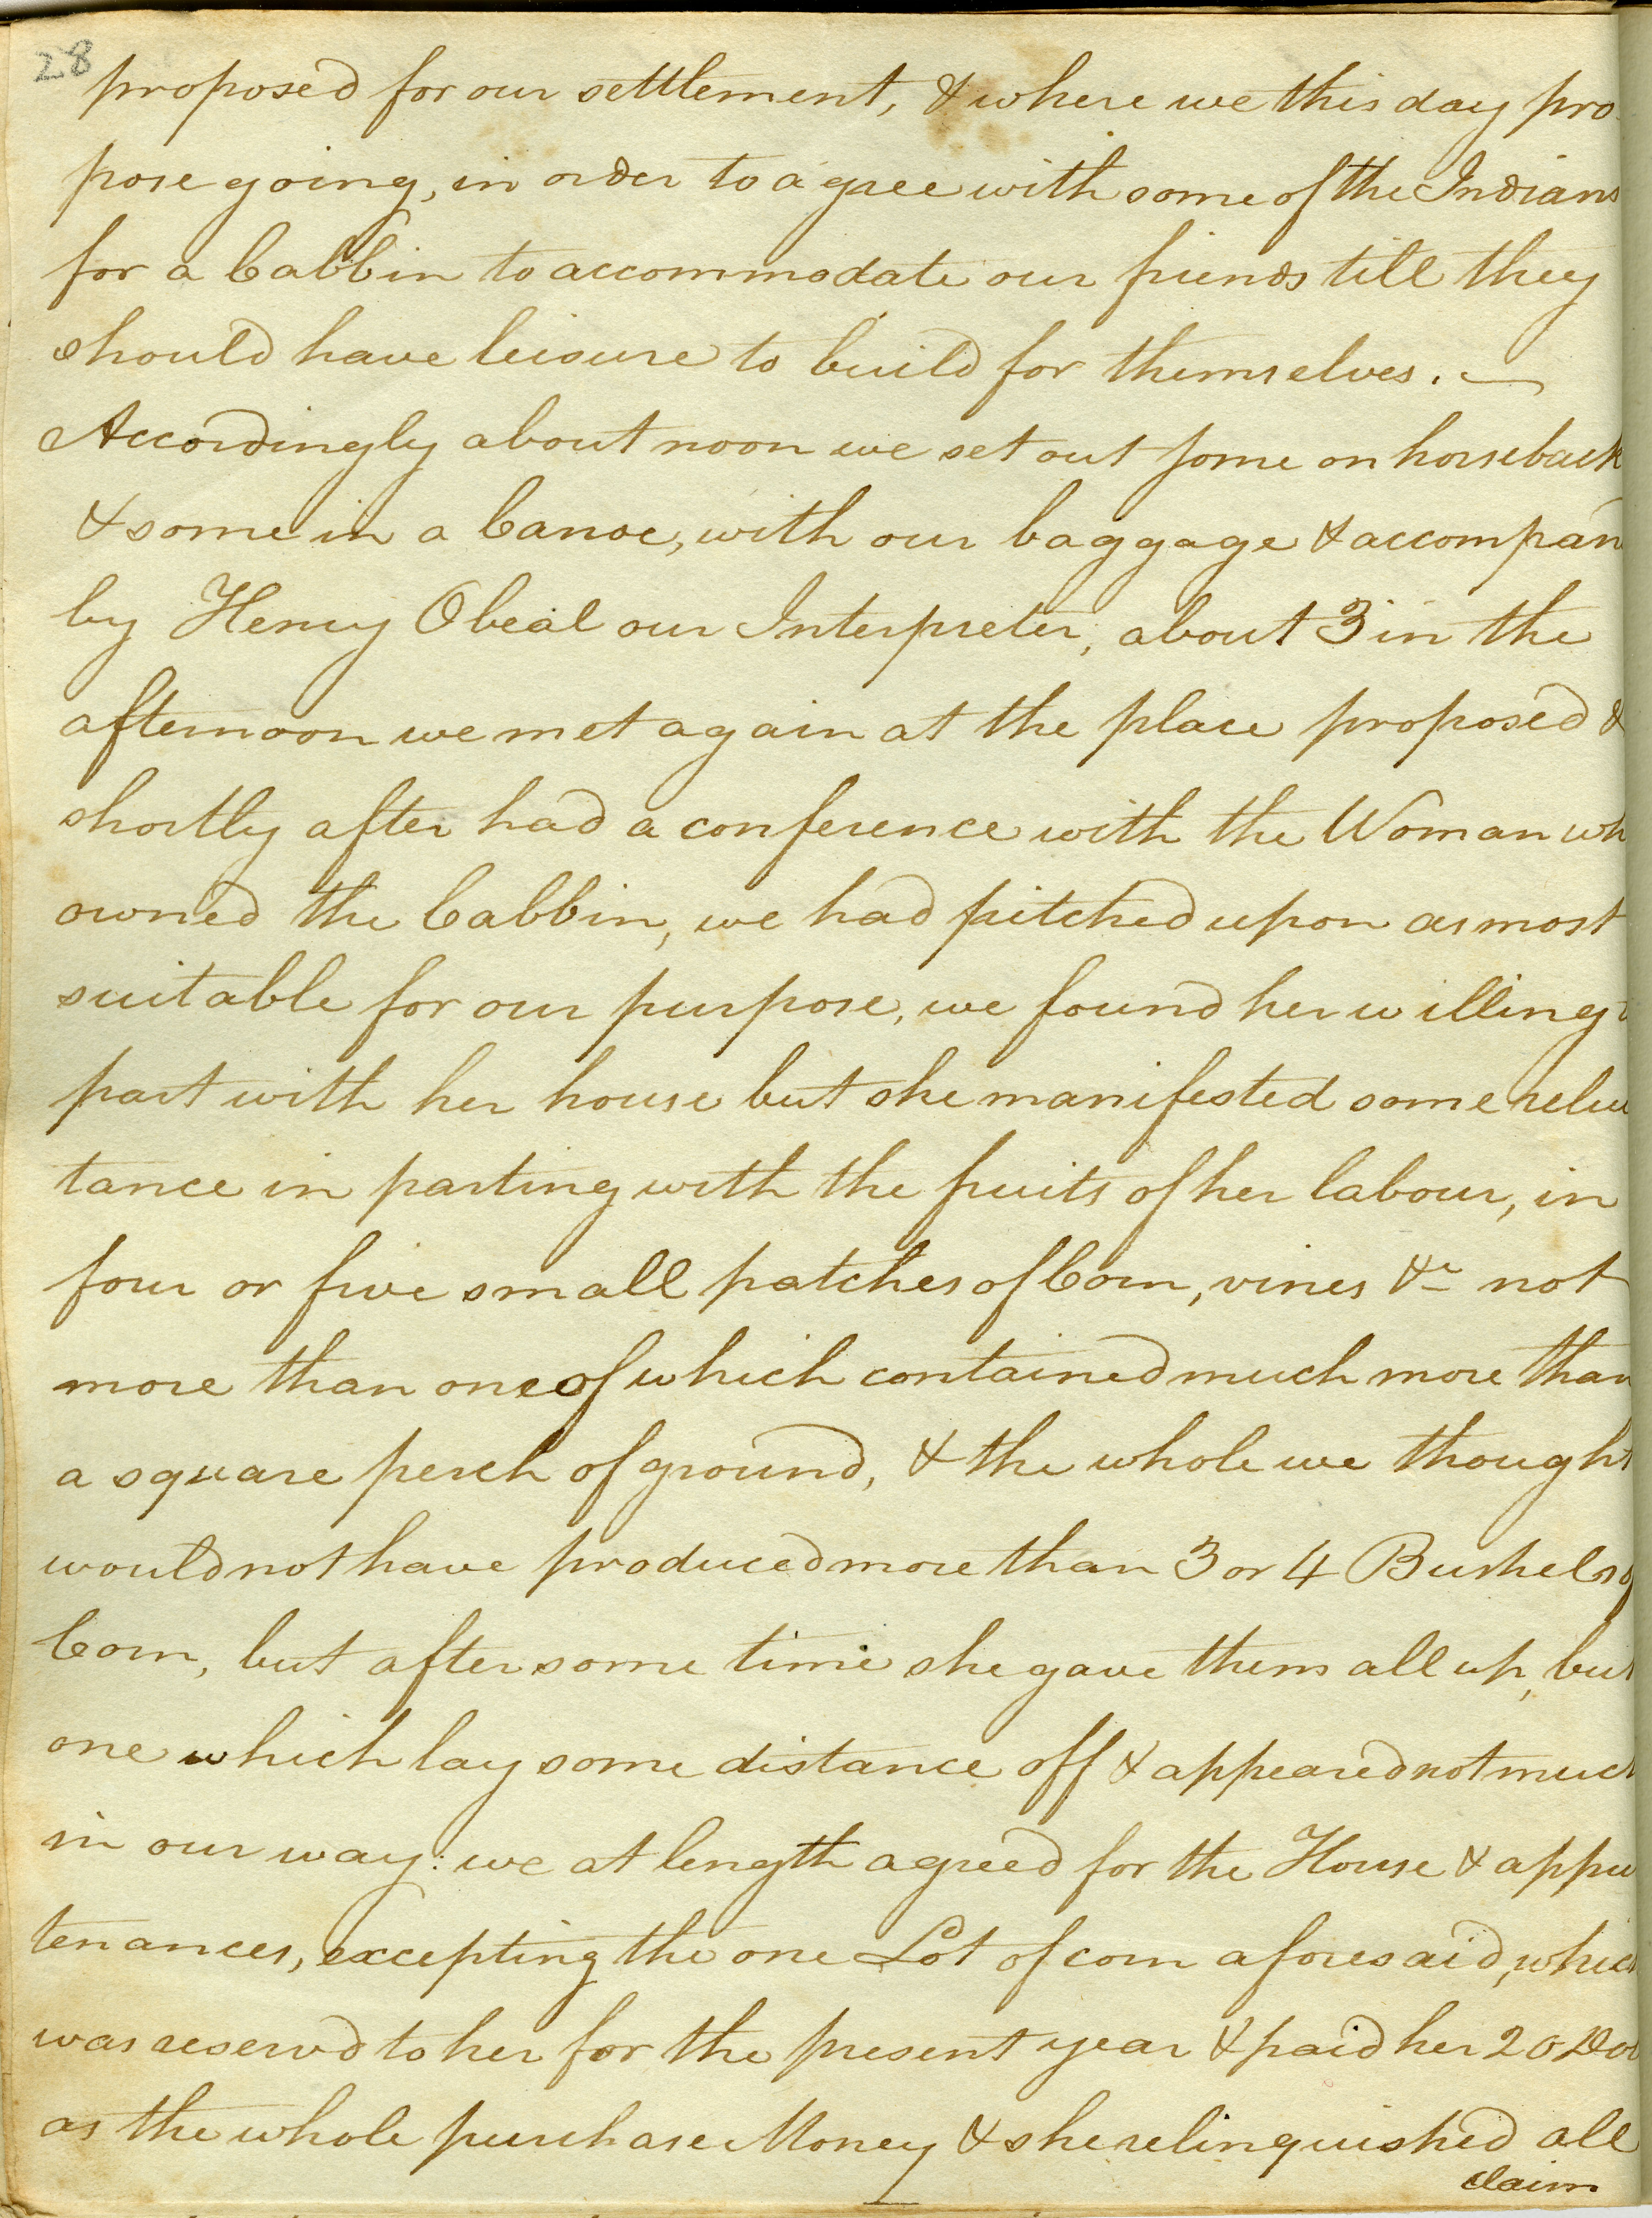 28
proposed for our settlement, & where we this day pro
pose going, in order to agree with some of the Indians
for a Cabbin to accommodate our friends till they
should have leisure to build for themselves. —
Accordingly about noon we set out some on horseback
& some in a Canoe, with our baggage & accompan
by Henry Obeal our Interpreter, about 3 in the
afternoon we met again at the place proposed &
shortly after had a conference with the Woman wh
owned the Cabbin, we had pitched upon as most
suitable for our purpose, we found her willing
part with her house but she manifested some reluc
tance in parting with the fruits of her labour, in
four or five small patches of Corn, vines &c not
more than one of which contained much more than
a square perch of ground, & the whole we thought
would not have produced more than 3 or 4 Bushels of
Corn, but after some time she gave them all up, but
one which lay some distance off & appeared not much
in our way: we at length agreed for the House & appu
tenances, excepting the one Lot of corn aforesaid, which
was reserv'd to her for the present year & paid her 20 Dol
as the whole purchase Money & she relinquished all
claim